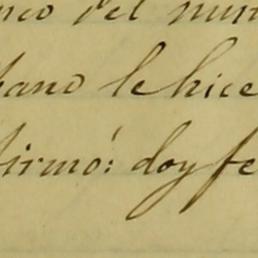 nco del num
bano le hice
firmó: doy fe